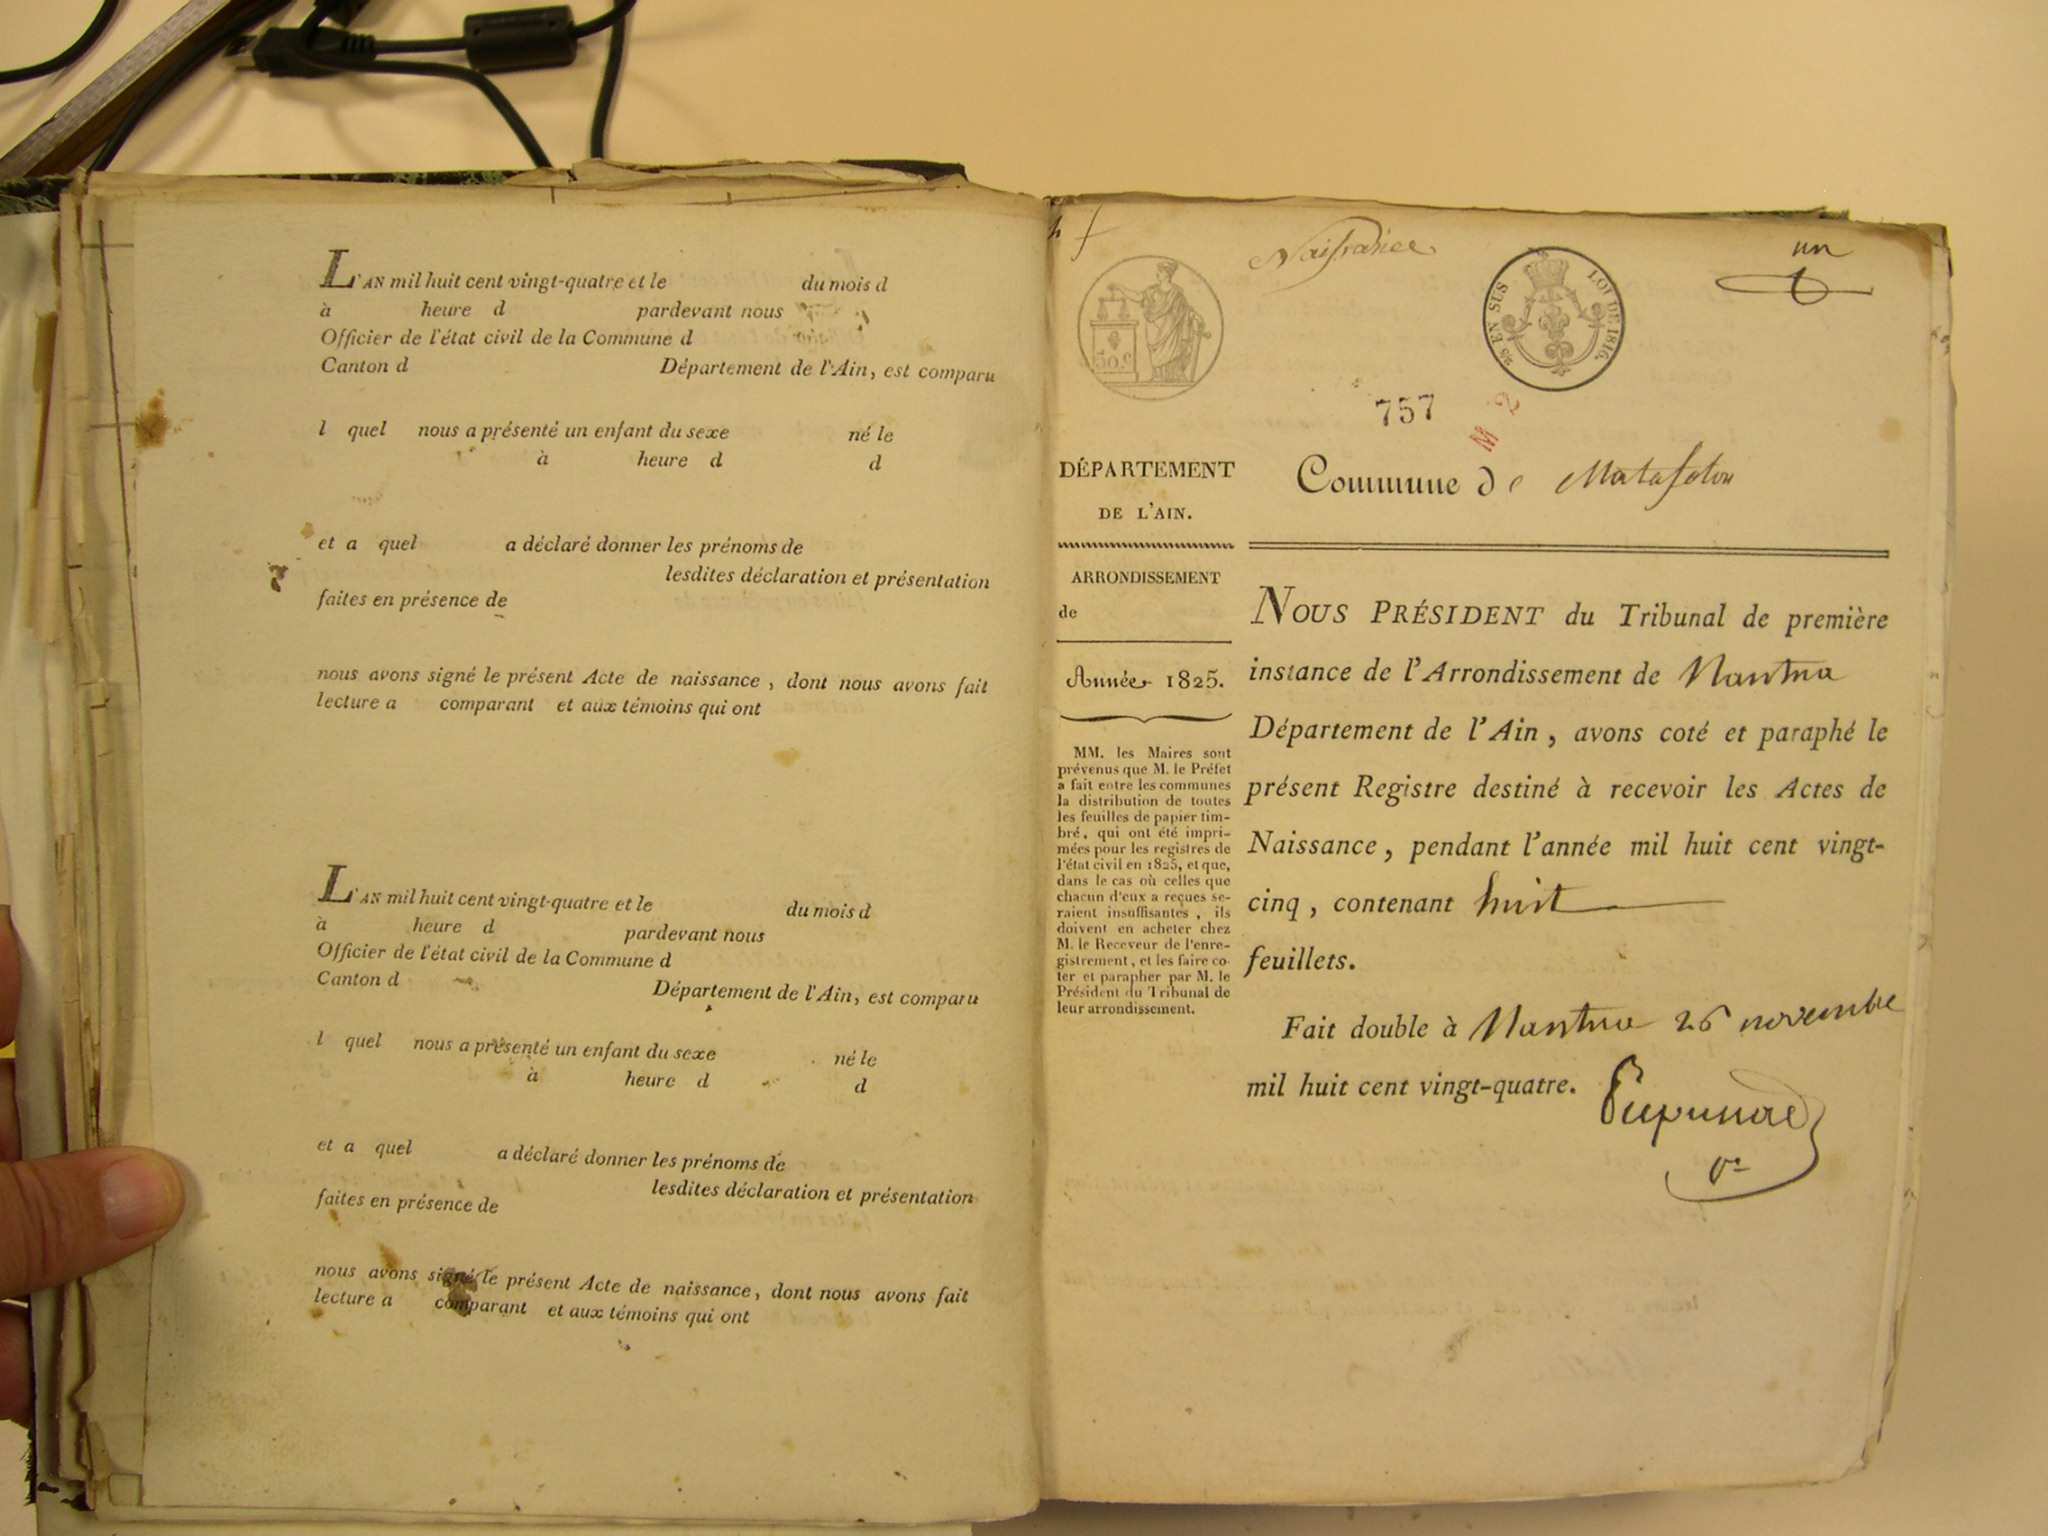 L'AN mil huit cent vingt-quatre et le du mois d
à heure d pardevant nous
Officier de l'état civil de la Commune d
Canton d Département de l'Ain, est comparu
l quel nous a présenté un enfant du sexe né le
à heure d d
et a quel a déclaré donner les prénoms de
lesdites déclaration et présentation
faites en présence de
nous avons signé le présent Acte de naissance, dont nous avons fait
lecture a comparant et aux témoins qui ont
L'AN mil huit cent vingt-quatre et le du mois d
à heure d pardevant nous
Officier de l'état civil de la Commune d
Canton d Département de l'Ain, est comparu
l quel nous a présenté un enfant du sexe né le
à heure d d
et a quel a déclaré donner les prénoms de
lesdites déclaration et présentation
faites en présence de
nous avons signé le présent Acte de naissance, dont nous avons fait
lecture a comparant et aux témoins qui ont
Naissance
un
50 c
25 EN SUS LOI DE 1816.
757
M 2
Commune de Matafelon
DÉPARTEMENT
DE L'AIN.
ARRONDISSEMENT
de
Année 1825.
MM. les Maires sont
prévenus que M. le Préfet
a fait entre les communes
la distribution de toutes
les feuilles de papier tim-
bré, qui ont été impri-
mées pour les registres de
l'état civil en 1825, et que,
dans le cas où celles que
chacun d'eux a reçues se-
raient insuffisantes, ils
doivent en acheter chez
M. le Receveur de l'enre-
gistrement, et les faire co-
ter et parapher par M. le
Président du Tribunal de
leur arrondissement.
NOUS PRÉSIDENT du Tribunal de première
instance de l'Arrondissement de Nantua
Département de l'Ain, avons coté et paraphé le
présent Registre destiné à recevoir les Actes de
Naissance, pendant l'année mil huit cent vingt-
cinq, contenant huit
feuillets.
Fait double à Nantua 26 novembre
mil huit cent vingt-quatre.